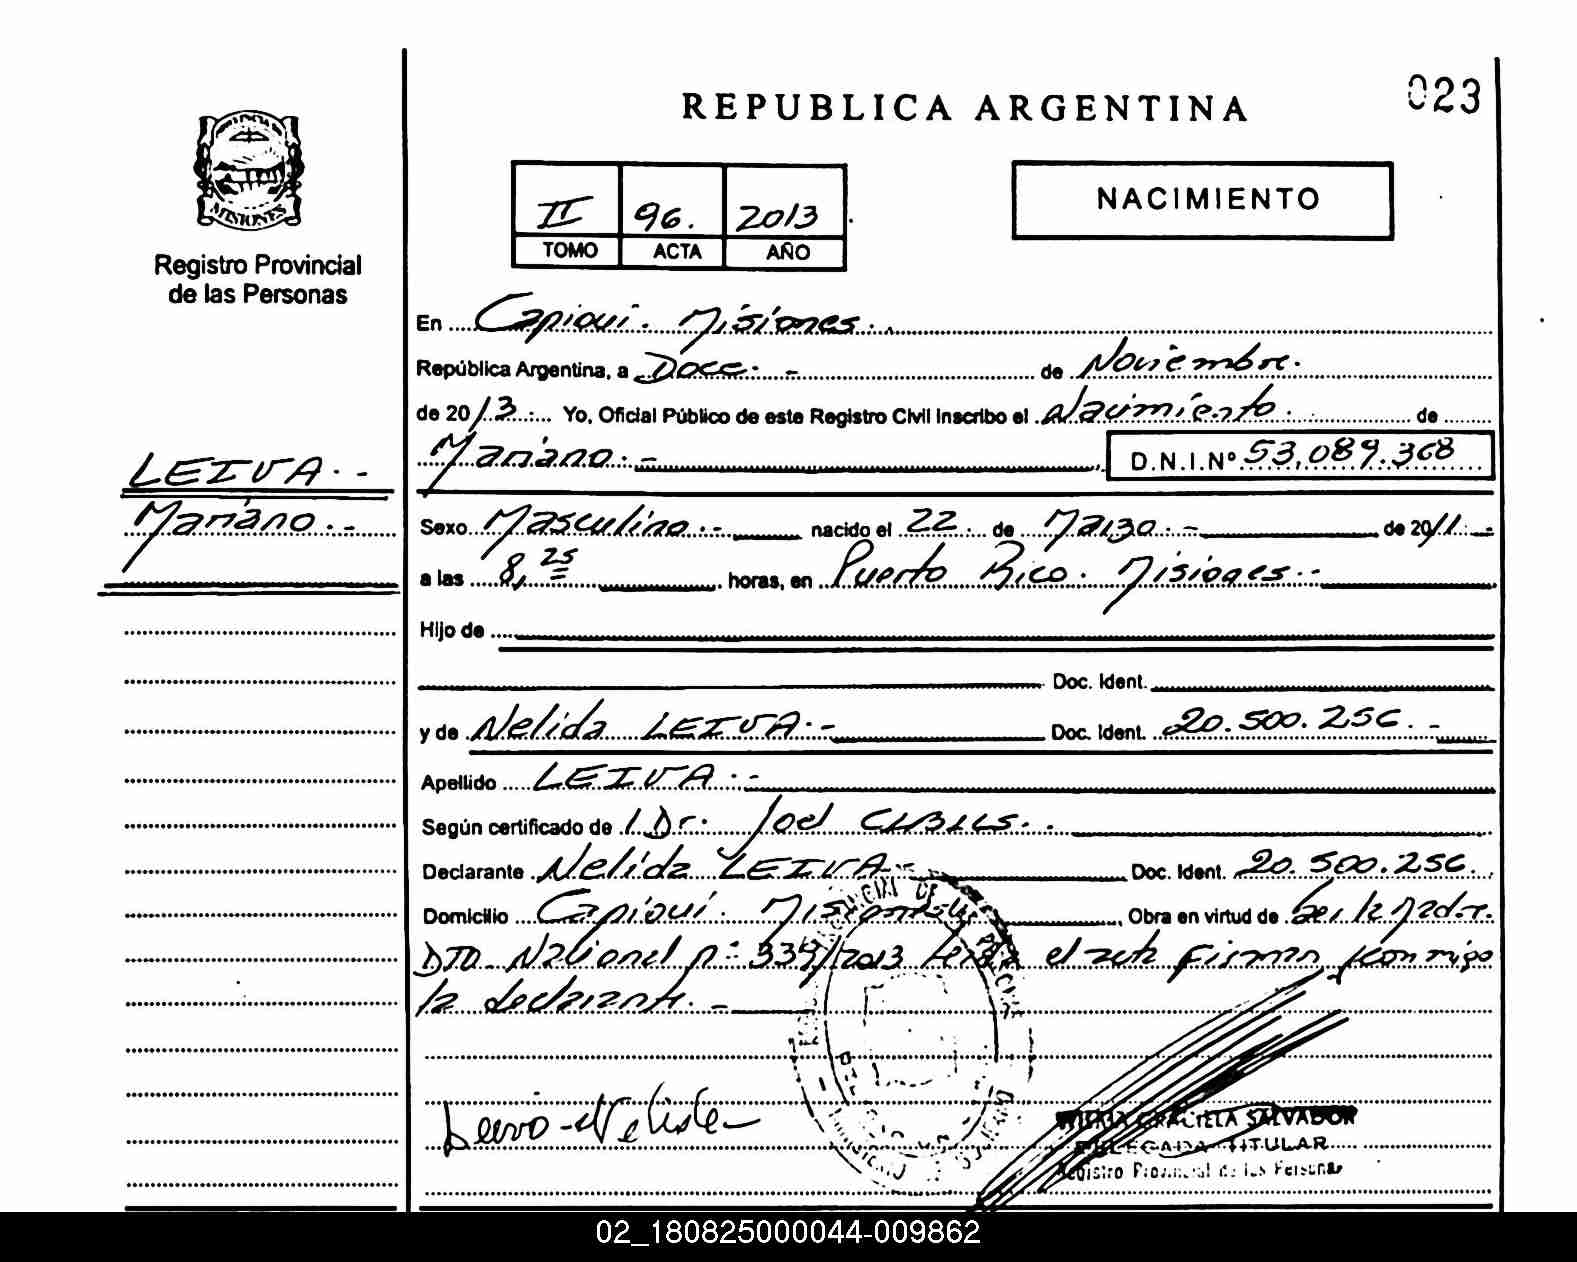 REPUBLICA ARGENTINA
023
MISIONES
Registro Provincial
de las Personas
NACIMIENTO
II 96. 2013
TOMO ACTA AÑO
En Capioui. Misiones.
República Argentina, a Doce. - de Noviembre.
de 2013. Yo, Oficial Público de este Registro Civil inscribo el Nacimiento. de
Mariano. - D.N.I.Nº 53,089.368
LEIVA. -
Mariano. -
Sexo Masculino. - nacido el 22. de Marzo. - de 2011. -
a las 8,25 horas, en Puerto Rico. Misiones. -
Hijo de
Doc. Ident.
y de Nelida LEIVA. - Doc. Ident. 20.500.256. -
Apellido LEIVA. -
Según certificado de / Dr. Joel CIBILS.
Declarante Nelida LEIVA. - Doc. Ident. 20.500.256.
Domicilio Capioui. Misiones Obra en virtud de Ser la Madre.
DTO. Nacional nº 339/2013 el acta firman conmigo
la declarante. -
GRACIELA SALVADOR
DELEGADA TITULAR
Registro Provincial de las Personas
02_180825000044-009862